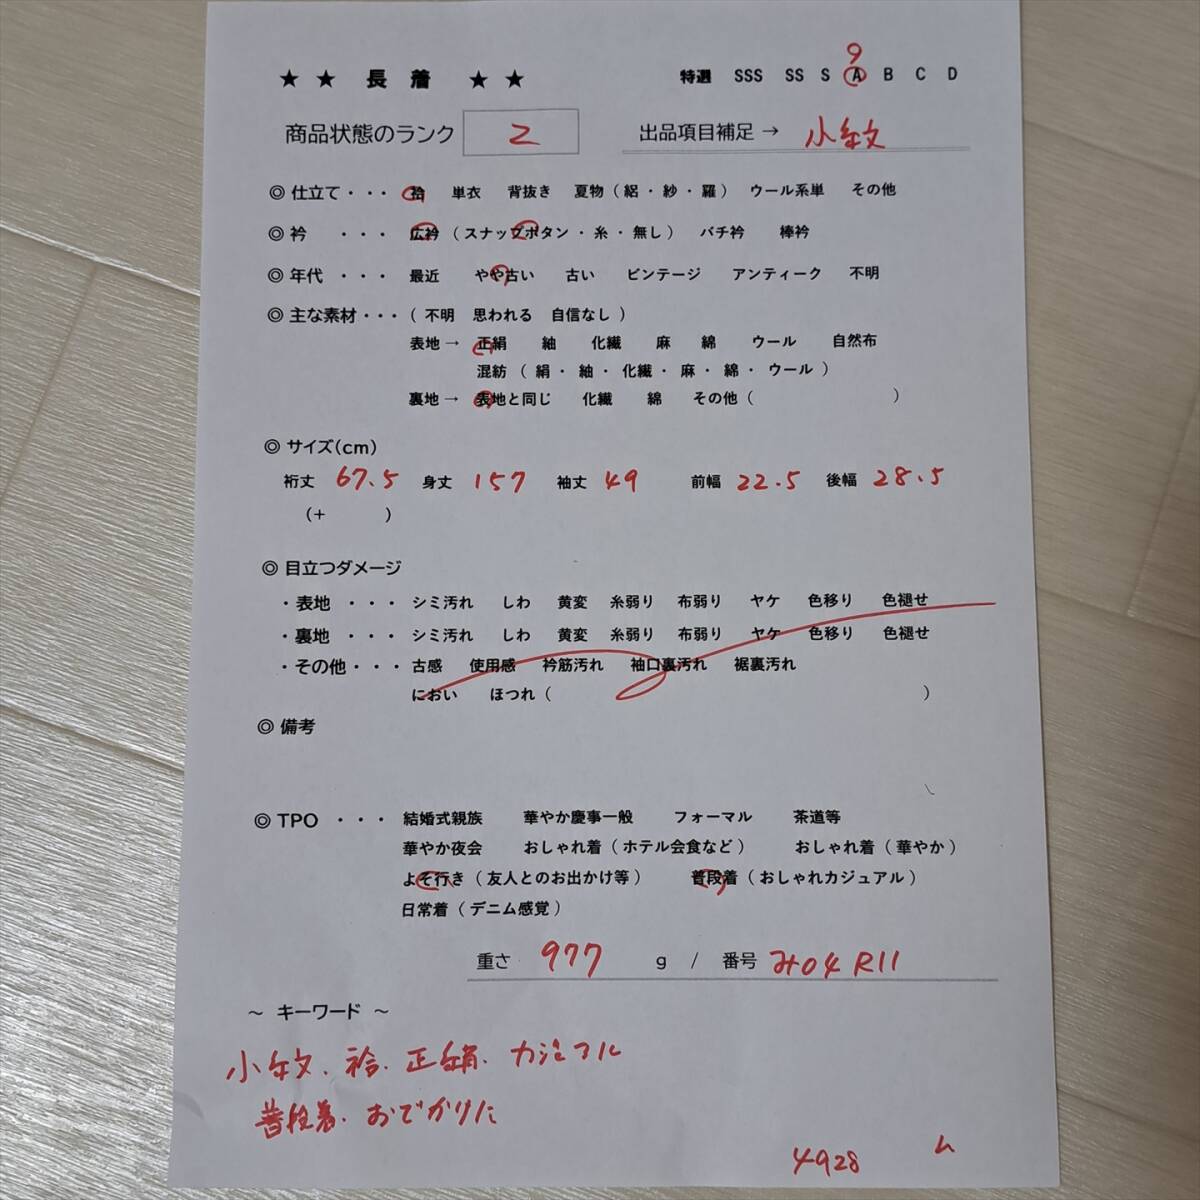 9
★ ★ 長 着 ★ ★ 特選 SSS SS S A B C D
商品状態のランク 2 出品項目補足→ 小紋
◎ 仕立て・・・ 袷 単衣 背抜き 夏物（絽・紗・羅） ウール系単 その他
◎ 衿 ・・・ 広衿（スナップボタン・糸・無し） バチ衿 棒衿
◎ 年代 ・・・ 最近 やや古い 古い ビンテージ アンティーク 不明
◎ 主な素材・・・（ 不明 思われる 自信なし ）
表地→ 正絹 紬 化繊 麻 綿 ウール 自然布
混紡（ 絹・紬・化繊・麻・綿・ウール ）
裏地→ 表地と同じ 化繊 綿 その他（ ）
◎ サイズ(cm)
裄丈 67.5 身丈 157 袖丈 49 前幅 22.5 後幅 28.5
（+ ）
◎ 目立つダメージ
・表地 ・・・ シミ汚れ しわ 黄変 糸弱り 布弱り ヤケ 色移り 色褪せ
・裏地 ・・・ シミ汚れ しわ 黄変 糸弱り 布弱り ヤケ 色移り 色褪せ
・その他・・・ 古感 使用感 衿筋汚れ 袖口裏汚れ 裾裏汚れ
におい ほつれ（ ）
◎ 備考
◎ TPO ・・・ 結婚式親族 華やか慶事一般 フォーマル 茶道等
華やか夜会 おしゃれ着（ホテル会食など） おしゃれ着（華やか）
よそ行き（友人とのお出かけ等） 普段着（おしゃれカジュアル）
日常着（デニム感覚）
重さ 977 g / 番号 み04R11
～ キーワード ～
小紋、袷、正絹、カジュアル
普段着、おでかけに
4928 ム